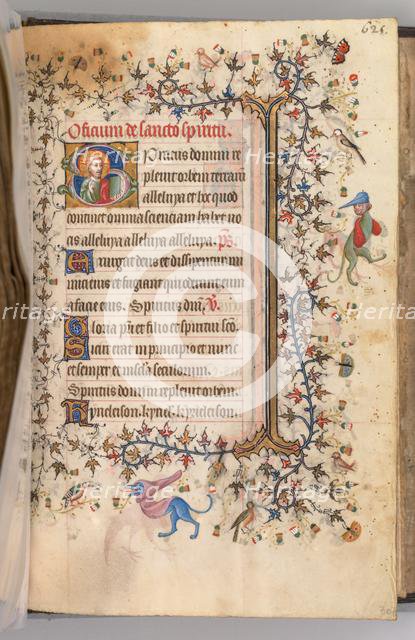 625
Officium de sancto spiritu.
Spiritus domini re
pleuit orbem terrarum
alleluya et hoc quod
continet omnia scienciam habet vo
cis alleluya alleluya alleluya. ps
Exurgat deus et dissipentur ini
mici eius et fugiant qui oderunt eum
a facie eius. Spiritus dni. V
Gloria pri et filio et spiritui sco
Sicut erat in principio et nunc
et semper et in secula seculorum.
Spiritus domini repleuit orbem.
Kyrieleison. kyriel. kyrieleison.
Heritage
Images